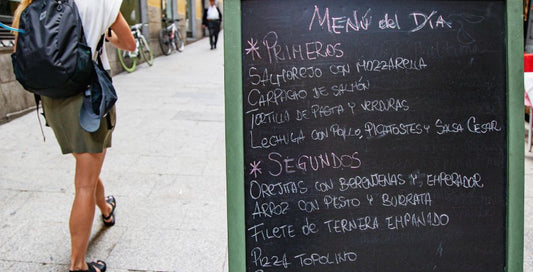 MENÚ del DÍA
* PRIMEROS
SALMOREJO CON MOZZARELLA
CARPACCIO DE SALMÓN
TORTILLA DE PASTA Y VERDURAS
LECHUGA CON POLLO, PICATOSTES Y SALSA CESAR
* SEGUNDOS
OREJITAS CON BERENJENAS Y EMPERADOR
ARROZ CON PESTO Y BURRATA
FILETE DE TERNERA EMPANADO
PIZZA TOPOLINO